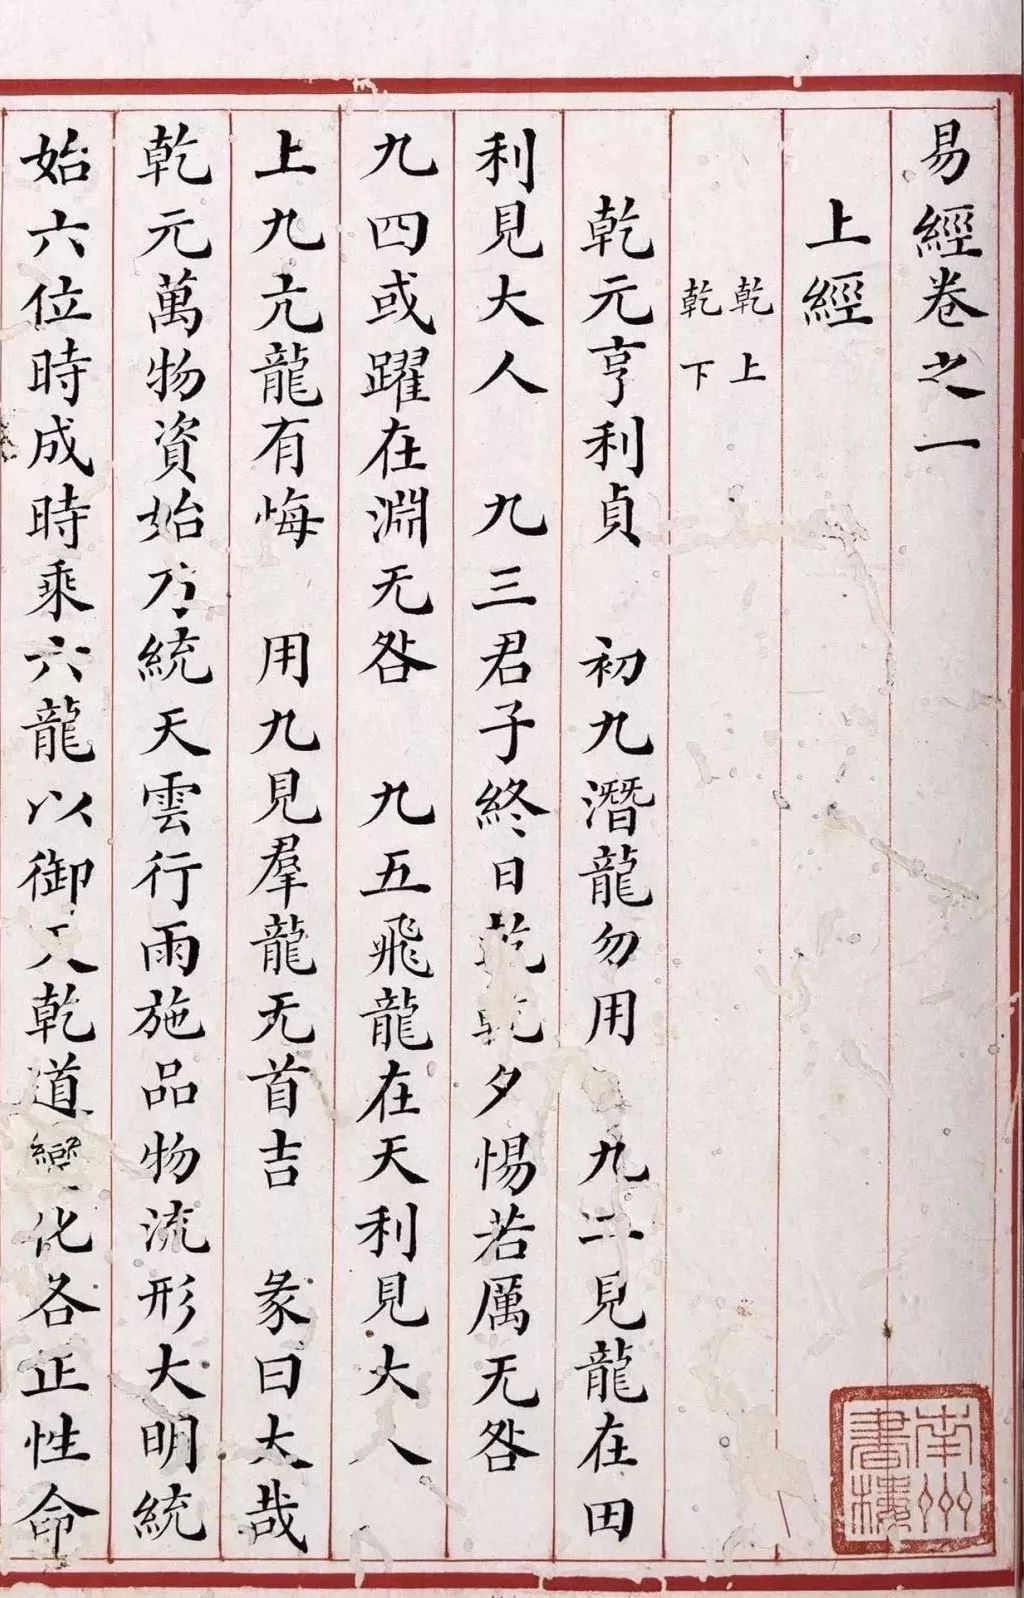 易經卷之一
上經
乾上
乾下
乾元亨利貞　初九潛龍勿用　九二見龍在田
利見大人　九三君子終日乾乾夕惕若厲无咎
九四或躍在淵无咎　九五飛龍在天利見大人
上九亢龍有悔　用九見羣龍无首吉　彖曰大哉
乾元萬物資始乃統天雲行雨施品物流形大明統
始六位時成時乘六龍以御天乾道變化各正性命
南州
書樓